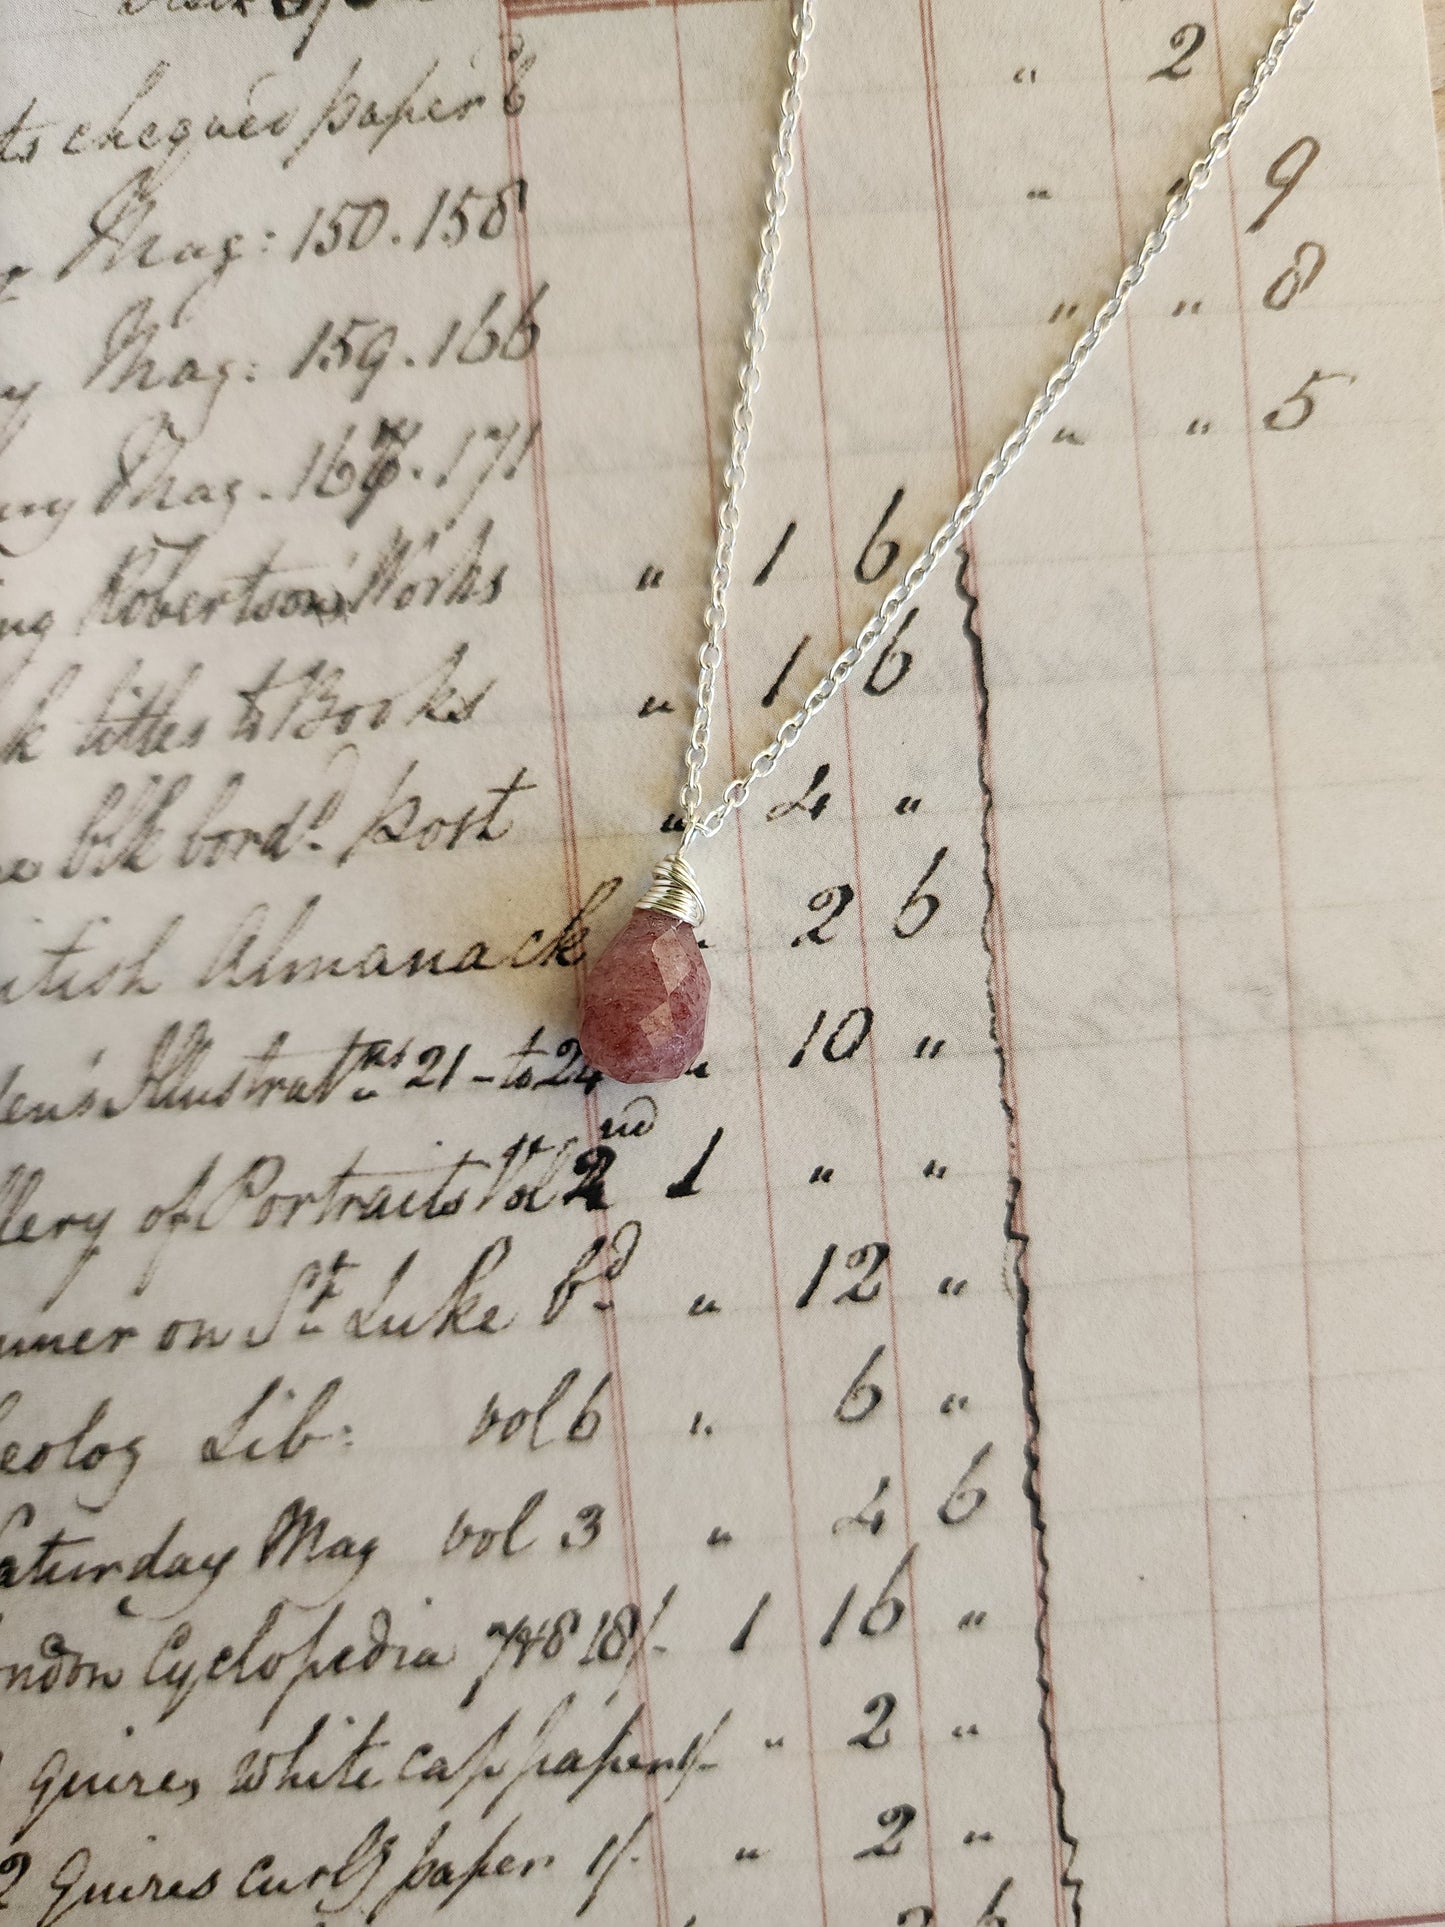 ts chequed paper 6 " 2
Mag: 150.158 " " 9
y Mag: 159.166 " " 8
ny Mag. 167.171 " " 5
ng Robertson Works " 1 6
k titles to Books " 1 6
blk bord.d post " 4 "
itish Almanack " 2 6
den's Illustrat.ns 21 - to 24 " 10 "
llery of Portraits Vol 2nd 1 " "
umner on St. Luke bd " 12 "
eolog Lib: vol 6 " 6 "
aturday Mag vol 3 " 4 6
ondon Cyclopedia 18/- 1 16 "
quires white cap paper 1/- " 2 "
2 quires curlg paper 1/- " 2 "
2 6